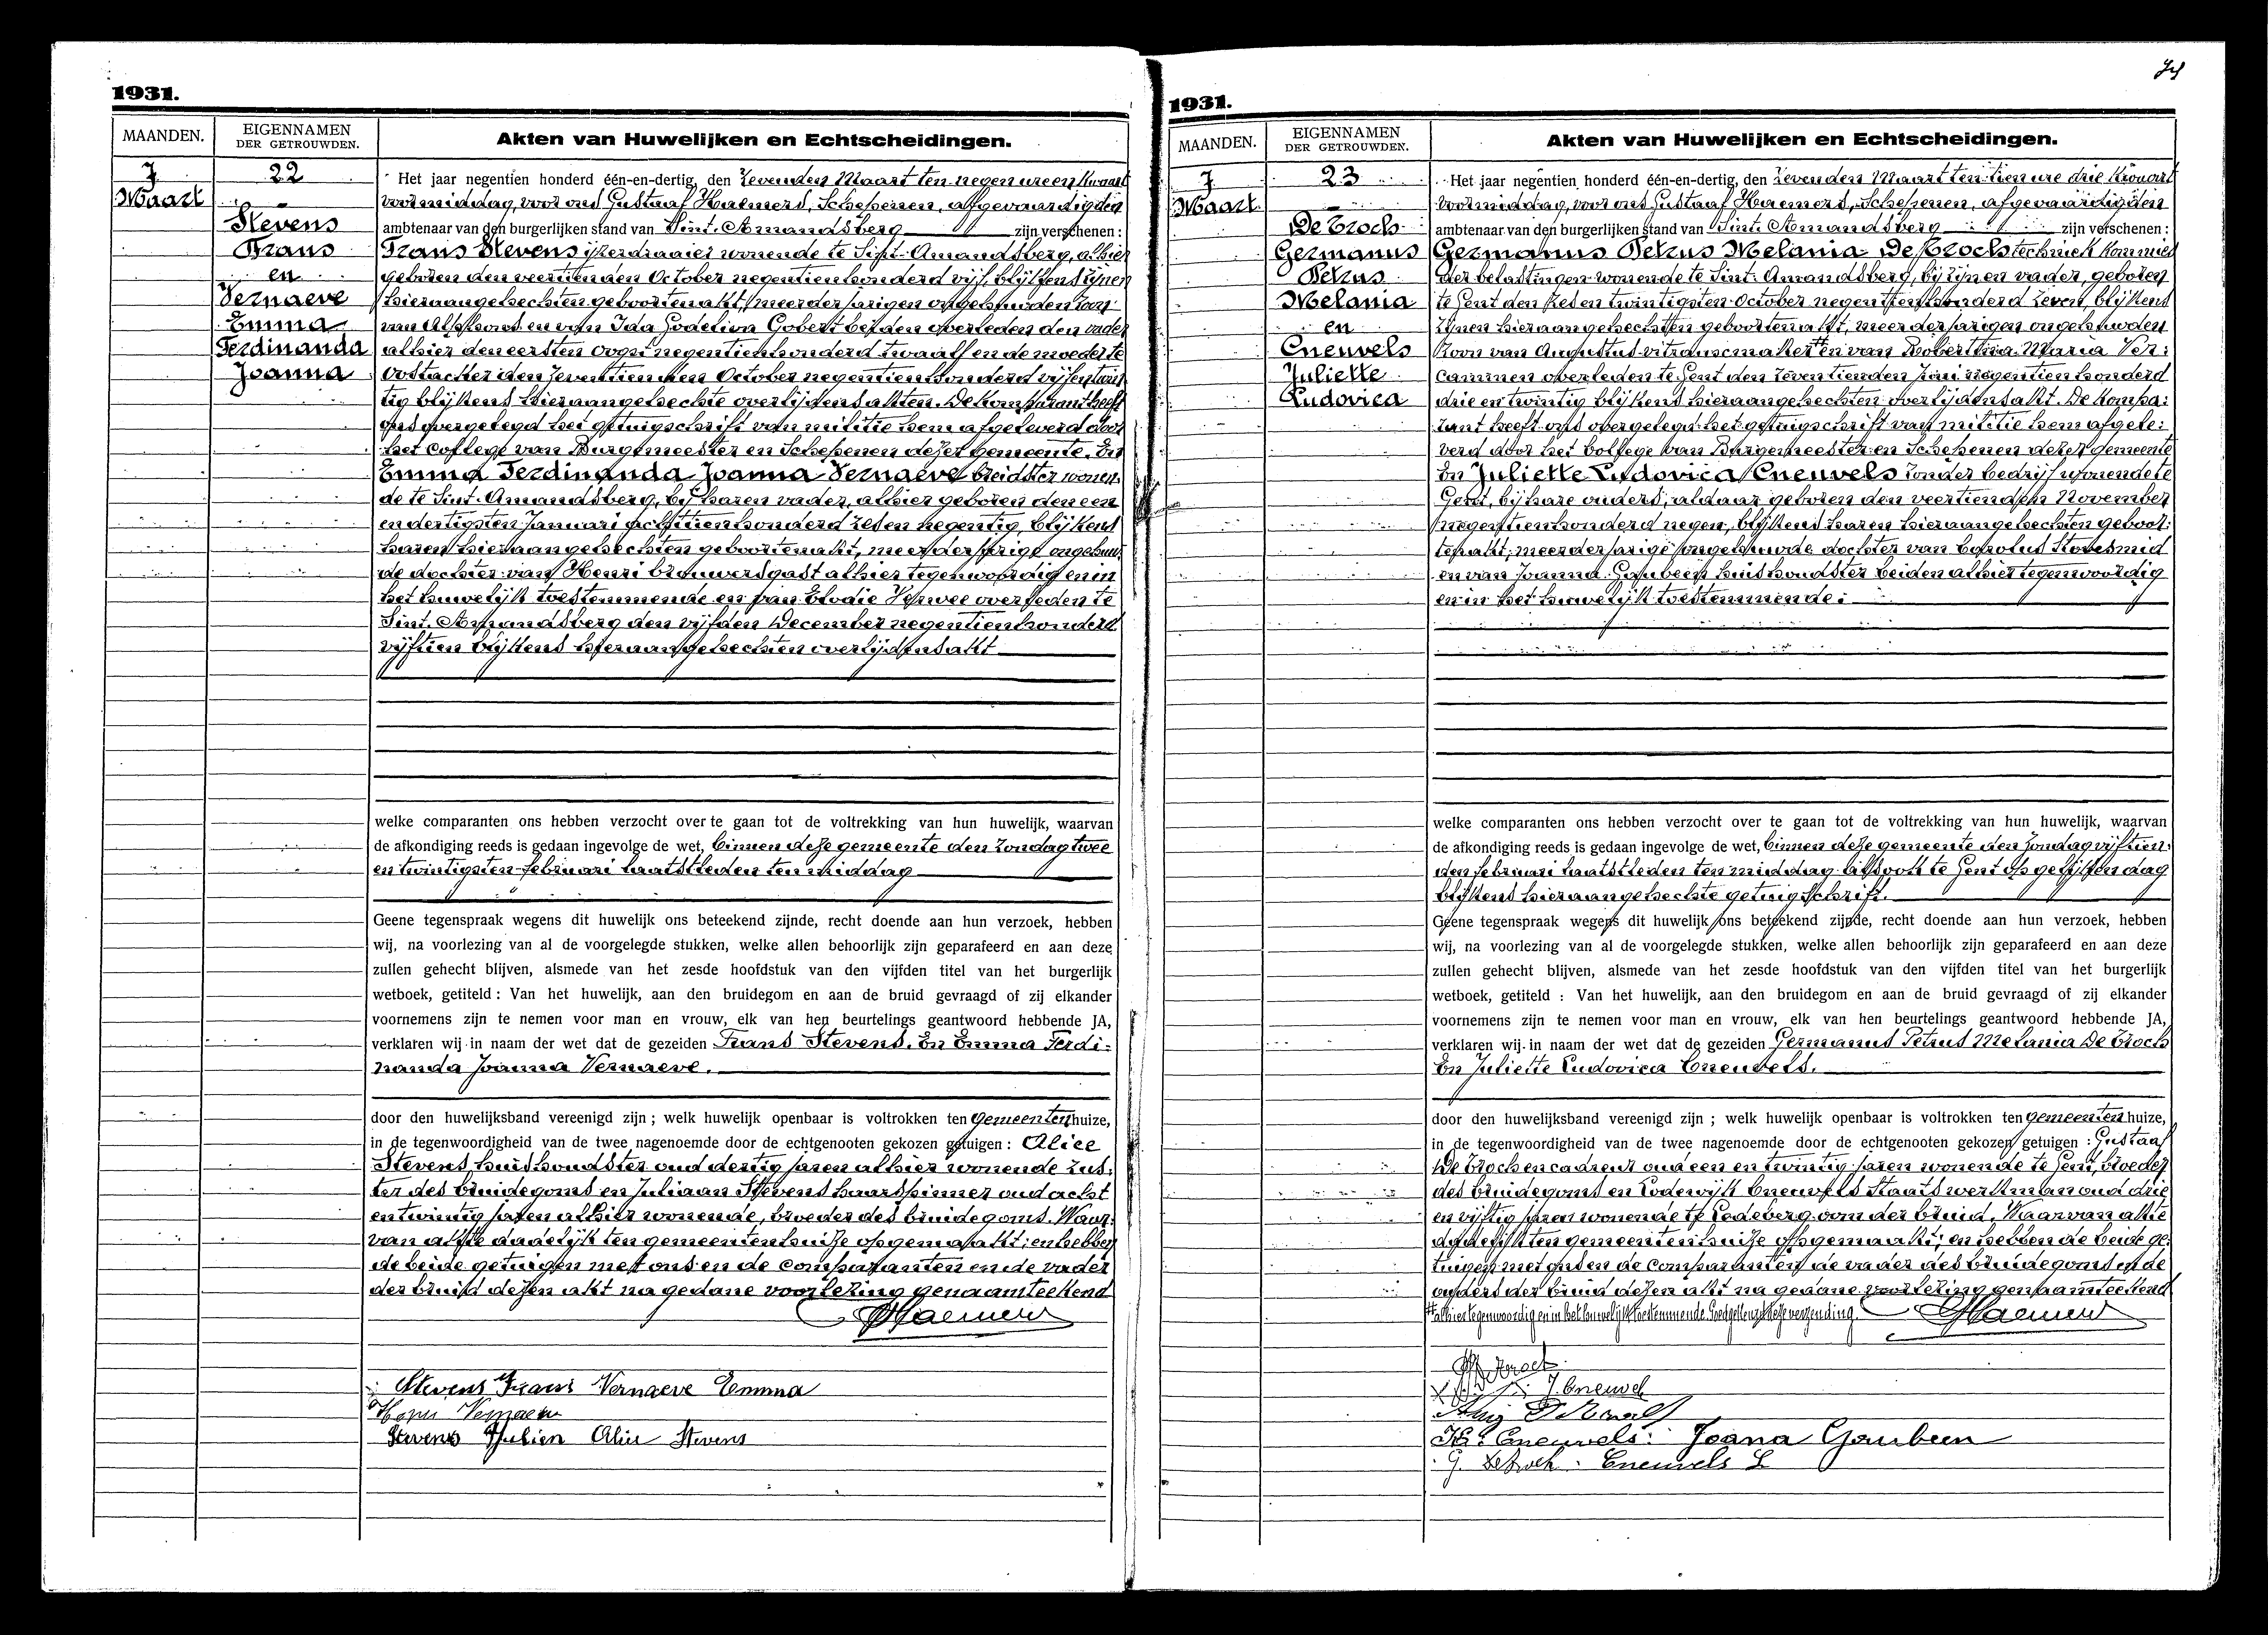 1931.
MAANDEN.
EIGENNAMEN
DER GETROUWDEN.
Akten van Huwelijken en Echtscheidingen.
7
Maart
22
Stevens
Frans
en
Vernaeve
Emma
Ferdinanda
Joanna
Het jaar negentien honderd één-en-dertig, den zevenden Maart ten negen ure en kwaart
voormiddag, voor ons Gustaaf Haemers, Schepenen, afgevaardigden
ambtenaar van den burgerlijken stand van Sint-Amandsberg zijn verschenen :
Frans Stevens ijzerdraaier wonende te Sint-Amandsberg, alhier
geboren den veertienden October negentienhonderd vijf, blijkens zijnen
hieraangehechten geboortenakt, meerderjarigen ongehuwden zoon
van Alphons en van Ida Godeliva Gobert beiden overleden den vader
alhier den eersten oogst negentienhonderd twaalf en de moeder te
Oostacker den zeventienden October negentienhonderd vijfentwin
tig blijkens hieraangehechte overlijdensakten. De komparant heeft
ons overgelegd het getuigschrift van militie hem afgeleverd door
het College van Burgemeester en Schepenen dezer gemeente. En
Emma Ferdinanda Joanna Vernaeve breidster wonen
de te Sint-Amandsberg, bij haren vader, alhier geboren den een
en dertigsten Januari achttienhonderd zesennegentig, blijkens
haren hieraangehechten geboortenakt, meerderjarige ongehuw
de dochter van Henri brouwersgast alhier tegenwoordig en in
het huwelijk toestemmende en van Elodie overleden te
Sint-Amandsberg den vijfden December negentienhonderd
vijftien blijkens hieraangehechten overlijdensakt
welke comparanten ons hebben verzocht over te gaan tot de voltrekking van hun huwelijk, waarvan
de afkondiging reeds is gedaan ingevolge de wet, binnen deze gemeente den Zondag twee
en twintigsten februari laatstleden ten middag
Geene tegenspraak wegens dit huwelijk ons beteekend zijnde, recht doende aan hun verzoek, hebben
wij, na voorlezing van al de voorgelegde stukken, welke allen behoorlijk zijn geparafeerd en aan deze
zullen gehecht blijven, alsmede van het zesde hoofdstuk van den vijfden titel van het burgerlijk
wetboek, getiteld : Van het huwelijk, aan den bruidegom en aan de bruid gevraagd of zij elkander
voornemens zijn te nemen voor man en vrouw, elk van hen beurtelings geantwoord hebbende JA,
verklaren wij in naam der wet dat de gezeiden Frans Stevens. En Emma Ferdi-
nanda Joanna Vernaeve.
door den huwelijksband vereenigd zijn ; welk huwelijk openbaar is voltrokken ten Gemeentenhuize,
in de tegenwoordigheid van de twee nagenoemde door de echtgenooten gekozen getuigen : Alice
Stevens huishoudster oud dertig jaren alhier wonende zus-
ter des bruidegoms en Juliaan Stevens haarspinner oud acht
en twintig jaren alhier wonende, broeder des bruidegoms. Waar-
van akte dadelijk ten gemeentenhuize opgemaakt; en hebben
de beide getuigen met ons en de comparanten en de vader
der bruid dezen akt na gedane voorlezing genaamteekend
GHaemers
Stevens Frans Vernaeve Emma
Vernaeve
Stevens Julien Alice Stevens
1931.
MAANDEN.
EIGENNAMEN
DER GETROUWDEN.
Akten van Huwelijken en Echtscheidingen.
7
Maart
23
De Croch
Germanus
Petrus
Melania
en
Cneuvels
Juliette
Ludovica
Het jaar negentien honderd één-en-dertig, den zevenden Maart ten tien ure drie kwaart
voormiddag, voor ons Gustaaf Haemers, Schepenen, afgevaardigden
ambtenaar van den burgerlijken stand van Sint-Amandsberg zijn verschenen :
Germanus Petrus Melania De Croch techniek kommies
der belastingen wonende te Sint-Amandsberg, bij zijnen vader, geboren
te Gent den zesentwintigsten October negentienhonderd zeven, blijkens
zijnen hieraangehechten geboortenakt, meerderjarigen ongehuwden
zoon van Augustus en van Robertina Maria Ver-
cammen overleden te Gent den zeventienden Juni negentienhonderd
drie en twintig blijkens hieraangehechten overlijdensakt. De kompa-
rant heeft ons overgelegd het getuigschrift van militie hem afgele-
verd door het College van Burgemeester en Schepenen dezer gemeente
En Juliette Ludovica Cneuvels zonder bedrijf wonende te
Gent, bij hare ouders, aldaar geboren den veertienden November
negentienhonderd negen, blijkens haren hieraangehechten geboor-
tenakt, meerderjarige ongehuwde dochter van Carolus Stovesmid
en van Joanna Gaubeen huishoudster beiden alhier tegenwoordig
en in het huwelijk toestemmende.
welke comparanten ons hebben verzocht over te gaan tot de voltrekking van hun huwelijk, waarvan
de afkondiging reeds is gedaan ingevolge de wet, binnen deze gemeente den Zondag vijftien-
den februari laatstleden ten middag alsook te Gent op gelijken dag
blijkens hieraangehechte getuigschrift.
Geene tegenspraak wegens dit huwelijk ons beteekend zijnde, recht doende aan hun verzoek, hebben
wij, na voorlezing van al de voorgelegde stukken, welke allen behoorlijk zijn geparafeerd en aan deze
zullen gehecht blijven, alsmede van het zesde hoofdstuk van den vijfden titel van het burgerlijk
wetboek, getiteld : Van het huwelijk, aan den bruidegom en aan de bruid gevraagd of zij elkander
voornemens zijn te nemen voor man en vrouw, elk van hen beurtelings geantwoord hebbende JA,
verklaren wij in naam der wet dat de gezeiden Germanus Petrus Melania De Croch
En Juliette Ludovica Cneuvels.
door den huwelijksband vereenigd zijn ; welk huwelijk openbaar is voltrokken ten gemeentenhuize,
in de tegenwoordigheid van de twee nagenoemde door de echtgenooten gekozen getuigen : Gustaaf
De Croch encadreur oud een en twintig jaren wonende te Gent, broeder
des bruidegoms en Lodewijk Cneuvels Staatswerkman oud drie
en vijftig jaren wonende te Ledeberg oom der bruid. Waarvan akte
dadelijk ten gemeentenhuize opgemaakt; en hebben de beide ge-
tuigen met ons en de comparanten de vader des bruidegoms en de
ouders der bruid dezen akt na gedane voorlezing genaamteekend
alhier tegenwoordig en in het huwelijk toestemmende. Goedgekeurd deze verzending.
GHaemers
J. Cneuvel
Cneuvels. Joana Gaubeen
G. Cneuvels L